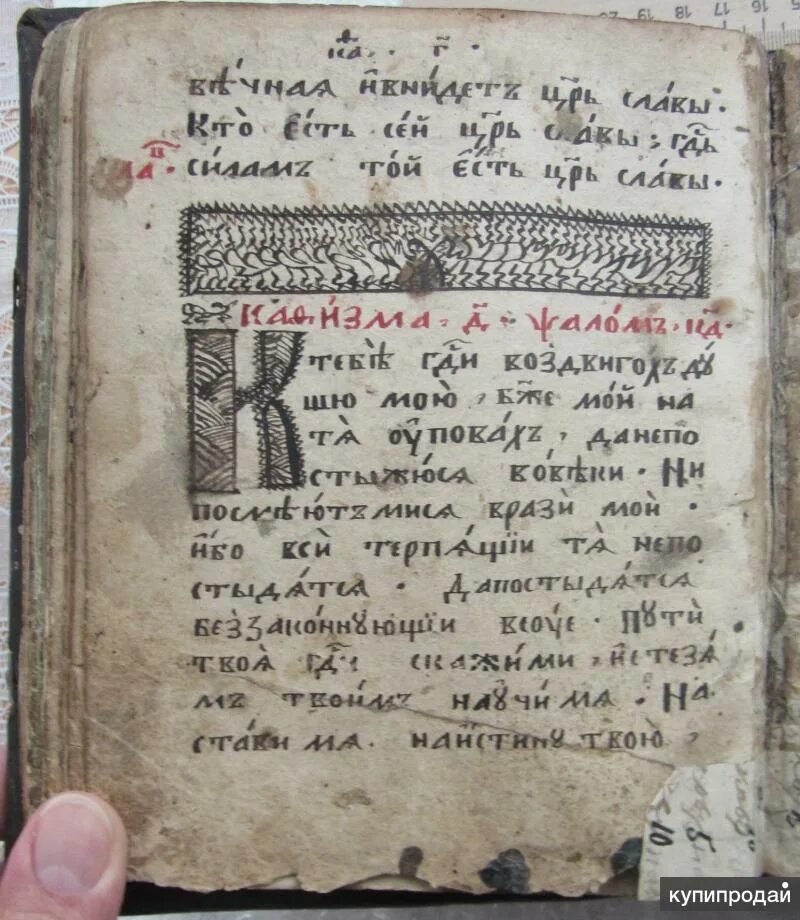 каѳ. г҃.
вѣ́чная и҆вни́детъ цр҃ь сла́вы.
Кто̀ є҆́сть се́й цр҃ь сла́вы; гдⷭ҇ь
сла҃. си́ламъ то́й є҆́сть цр҃ь сла́вы.
каѳи́зма, д҃. ѱало́мъ. кд҃.
К тебѣ̀ гдⷭ҇и воздвиго́хъ дꙋ́
шю мою̀, бж҃е мо́й на
тѧ̀ ᲂу҆пова́хъ, данепо
стыжю́сѧ вовѣ́ки. Ни
посмѣю́тъмисѧ вразѝ моѝ.
и҆́бо всѝ терпѧ́щїи тѧ̀ непо
стыдѧ́тсѧ. Дапостыдѧ́тсѧ
беззако́ннꙋющїи всоу́е. Пꙋтѝ
твоѧ̀ гдⷭ҇и скажи́ми, и҆стезѧ́
мъ твои̑мъ наꙋчи́ мѧ. На
ста́ви мѧ. наи́стинꙋ твою̀,
15 16 17 18 19 20
10
купипродай